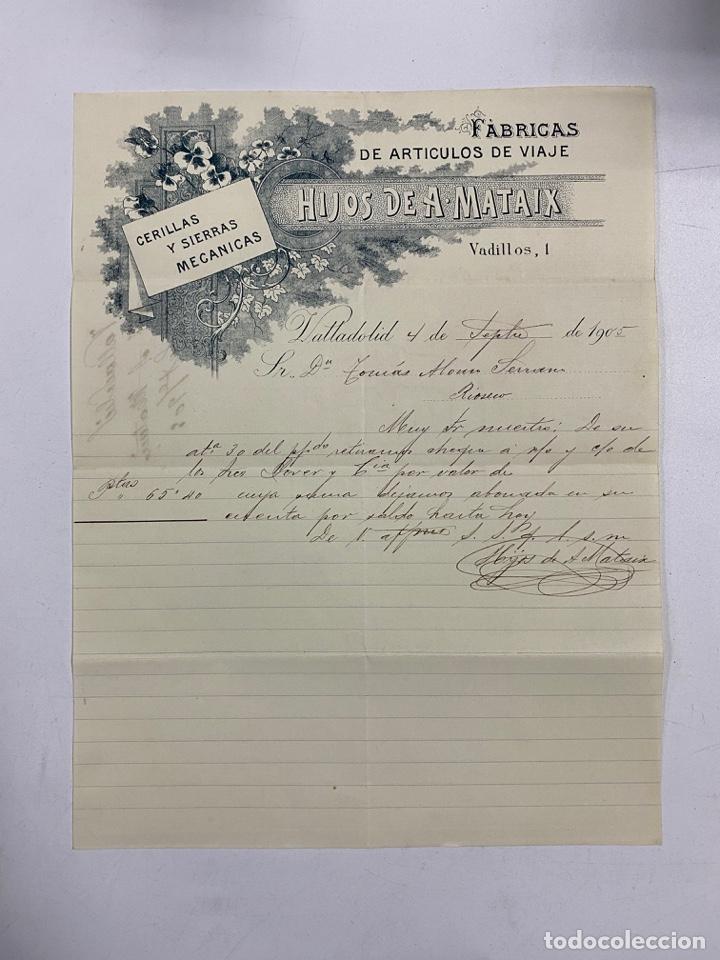 FÁBRICAS
DE ARTICULOS DE VIAJE
HIJOS DE A. MATAIX
Vadillos, 1
CERILLAS
Y SIERRAS
MECANICAS
Valladolid 4 de Septre de 1905
Sr. Dn Tomás Alonso Serrano
Rioseco
Muy Sr nuestro: De su
ata 30 del ppdo retiramos cheque a n/o y c/o de
los Sres Dover y Cia por valor de
Ptas 65'40 cuya suma dejamos abonada en su
cuenta por saldo hasta hoy
De V affmo S. S. q. b. s. m
Hijos de A Mataix
todocoleccion.net